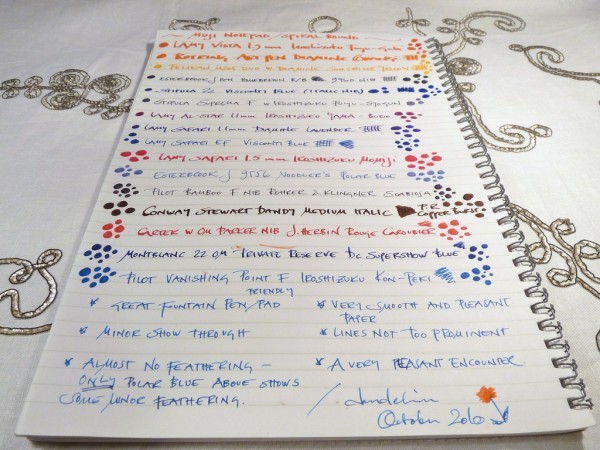 MUJI NOTEPAD/SPIRAL BOUND
LAMY VISTA 1.9 mm IROSHIZUKU Fuyu-Gaki
ROTRING ART PEN DIAMINE
PELIKAN DIAMINE
ESTERBROOK J PEN 9460 NIB
STIPULA 22 VISCONTI BLUE (ITALIC NIB)
STIPULA SUPREMA F W IROSHIZUKU FUYU-SYOGUN
LAMY AL-STAR 1.1 mm IROSHIZUKU YAMA-BUDO
LAMY SAFARI 1.1 mm DIAMINE LAVENDER
LAMY SAFARI EF VISCONTI BLUE
LAMY SAFARI 1.5 mm IROSHIZUKU MOMIJI
ESTERBROOK J 9556 NOODLER'S POLAR BLUE
PILOT BAMBOO F NIB ROHRER & KLINGNER SCABIOSA
CONWAY STEWART DANDY MEDIUM ITALIC P.R. COPPER BURST
CARTER W OM PARKER NIB J HERBIN ROUGE CAROUBIER
MONTBLANC 22 OM PRIVATE RESERVE DC SUPERSHOW BLUE
PILOT VANISHING POINT F IROSHIZUKU KON-PEKI
FRIENDLY
* GREAT FUNTAIN PEN/PAD
* VERY SMOOTH AND PLEASANT
PAPER
* MINOR SHOW THROUGH
* LINES NOT TOO PROMINENT
* ALMOST NO FEATHERING –
* A VERY PLEASANT ENCOUNTER
ONLY POLAR BLUE ABOVE SHOWS
SOME MINOR FEATHERING.
October 2010